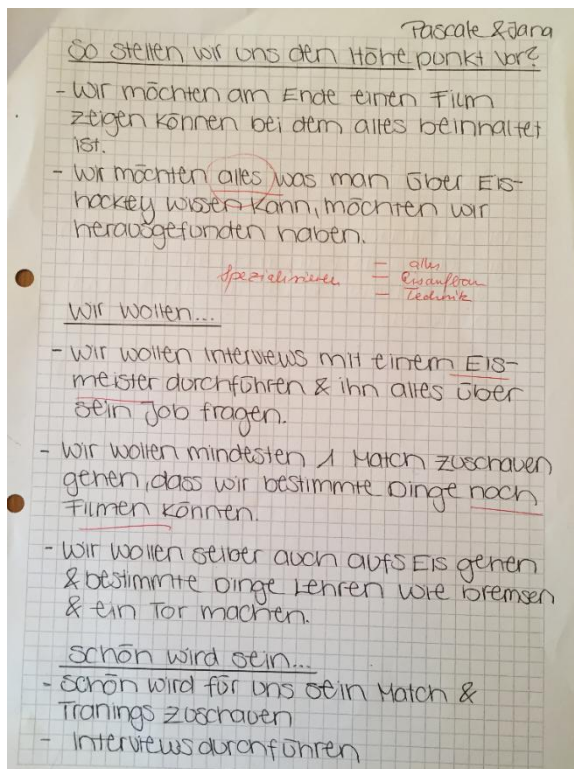 Pascale & Jana
So stellen wir uns den Höhepunkt vor?
- Wir möchten am Ende einen Film
zeigen können bei dem alles beinhaltet
ist.
- Wir möchten alles was man über Eis-
hockey wissen kann, möchten wir
herausgefunden haben.
- alles
Spezialisieren - Eisaufbau
- Technik
Wir wollen...
- Wir wollen Interviews mit einem Eis-
meister durchführen & ihn alles über
sein Job fragen.
- Wir wollen mindesten 1 Match zuschauen
gehen, dass wir bestimmte Dinge noch
Filmen können.
- Wir wollen selber auch aufs Eis gehen
& bestimmte Dinge Lehren wie bremsen
& ein Tor machen.
Schön wird sein...
- Schön wird für uns sein Match &
Tranings zuschauen
- Interviews durchführen